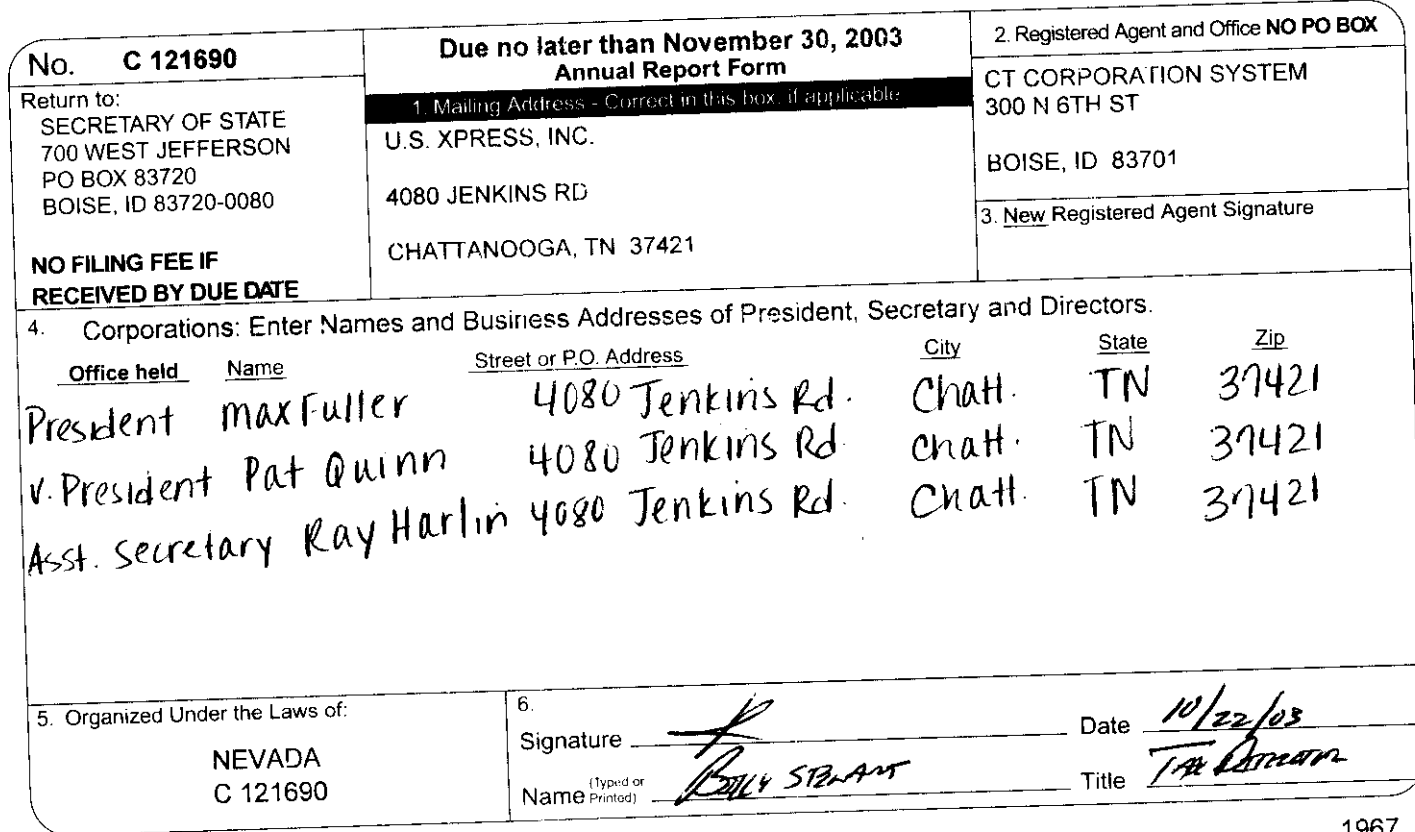 No. C 121690
Return to:
SECRETARY OF STATE
700 WEST JEFFERSON
PO BOX 83720
BOISE, ID 83720-0080
NO FILING FEE IF
RECEIVED BY DUE DATE
Due no later than November 30, 2003
Annual Report Form
1. Mailing Address - Correct in this box, if applicable
U.S. XPRESS, INC.
4080 JENKINS RD
CHATTANOOGA, TN 37421
2. Registered Agent and Office NO PO BOX
CT CORPORATION SYSTEM
300 N 6TH ST
BOISE, ID 83701
3. New Registered Agent Signature
4. Corporations: Enter Names and Business Addresses of President, Secretary and Directors.
Office held Name Street or P.O. Address City State Zip
President Max Fuller 4080 Jenkins Rd. Chatt. TN 37421
V. President Pat Quinn 4080 Jenkins Rd. Chatt. TN 37421
Asst. Secretary Ray Harlin 4080 Jenkins Rd. Chatt. TN 37421
5. Organized Under the Laws of:
NEVADA
C 121690
6.
Signature Date 10/22/03
Name (Typed or Printed) Title Tax Director
1967